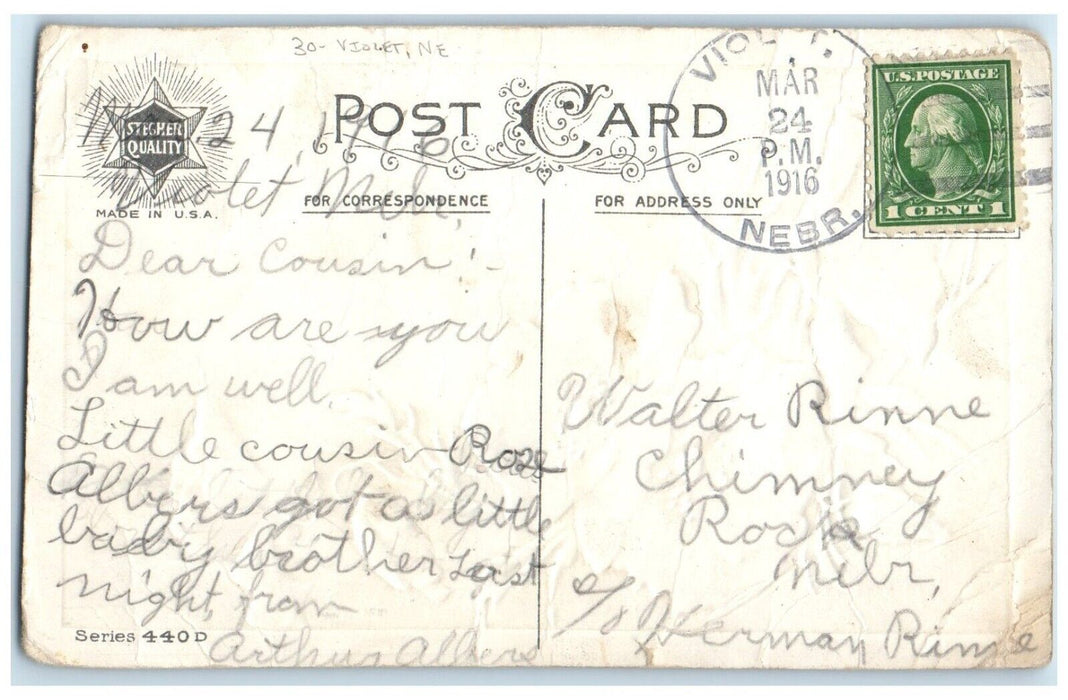 30- VIOLET, NE
STECHER
QUALITY
MADE IN U.S.A.
POST CARD
FOR CORRESPONDENCE
FOR ADDRESS ONLY
VIOLET,
MAR
24
P.M.
1916
NEBR.
U.S. POSTAGE
1 CENT 1
Mar 24, 1916
Violet Nebr,
Dear Cousin!-
How are you
I am well.
Little cousin Rose
Albers got a little
baby brother Last
night, from
Arthur Albers
Series 440 D
Walter Rinne
Chimney
Rock
Nebr,
c/o Herman Rinne